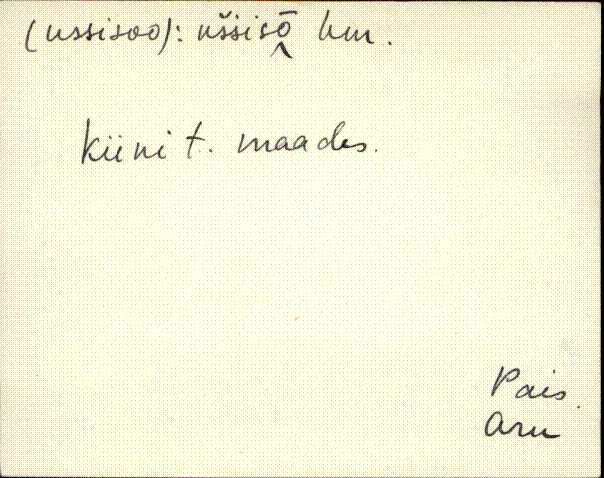 (ussisoo): uššisō hm.
kiini t. maades.
Pais.
Aru